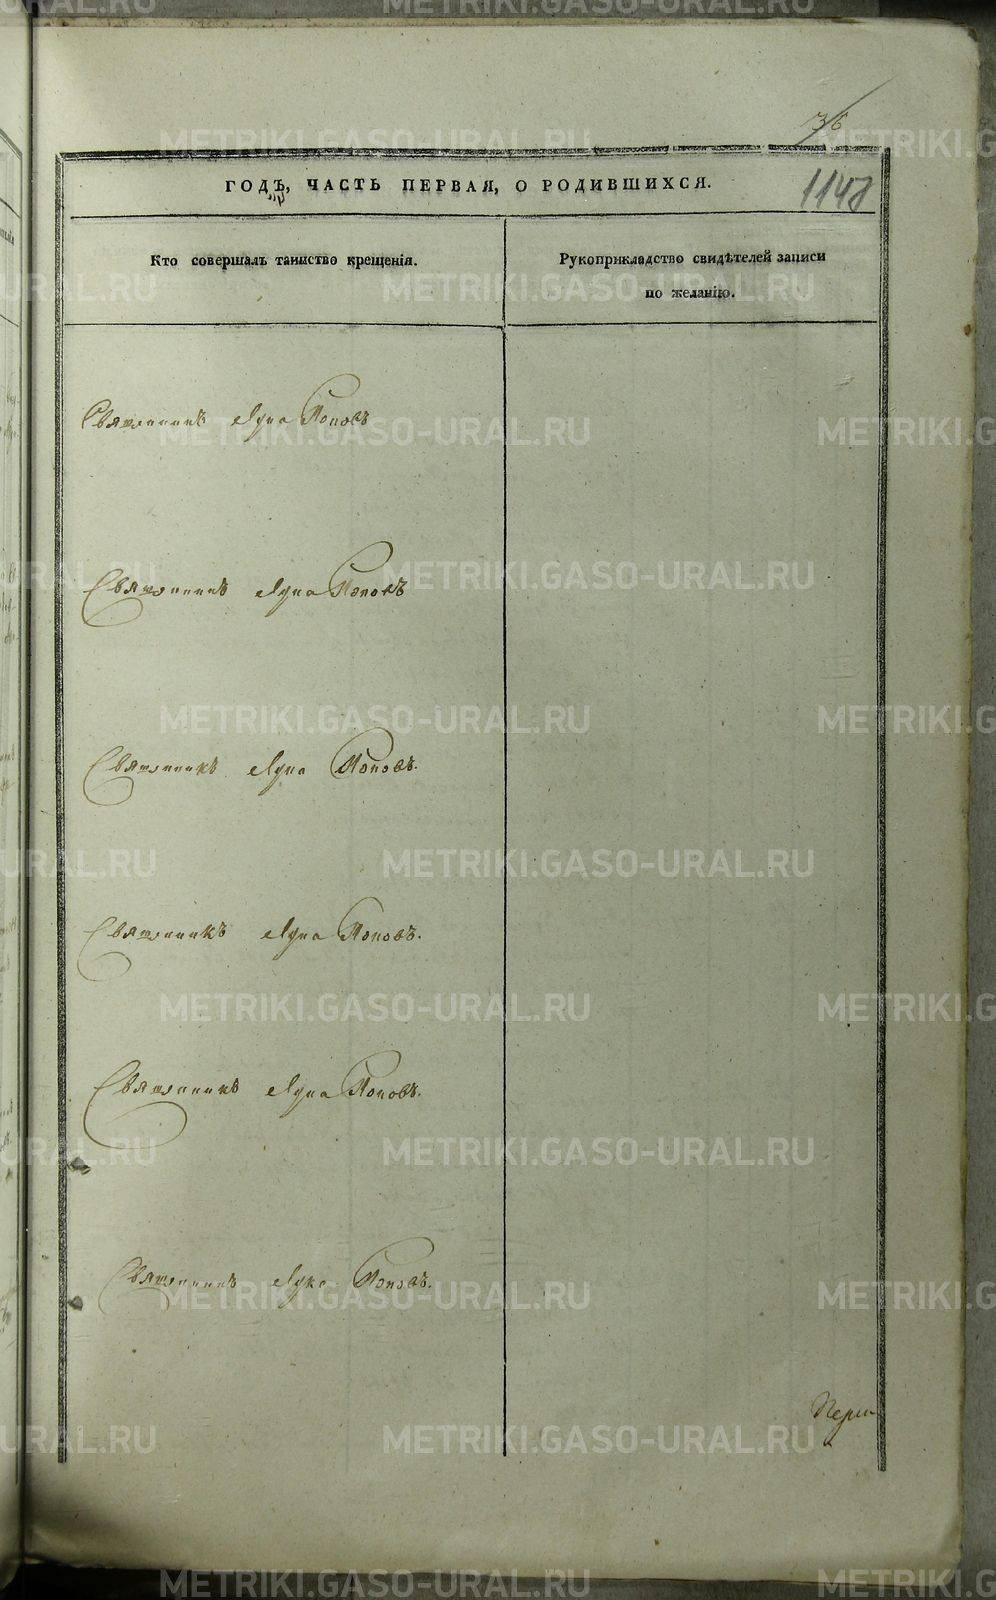 36
1148
ГОДЪ, ЧАСТЬ ПЕРВАЯ, О РОДИВШИХСЯ.
Кто совершалъ таинство крещенія.
Рукоприкладство свидѣтелей записи
по желанію.
Священникъ Лука Поповъ
Священникъ Лука Поповъ
Священникъ Лука Поповъ.
Священникъ Лука Поповъ.
Священникъ Лука Поповъ.
Священникъ Лука Поповъ.
METRIKI.GASO-URAL.RU